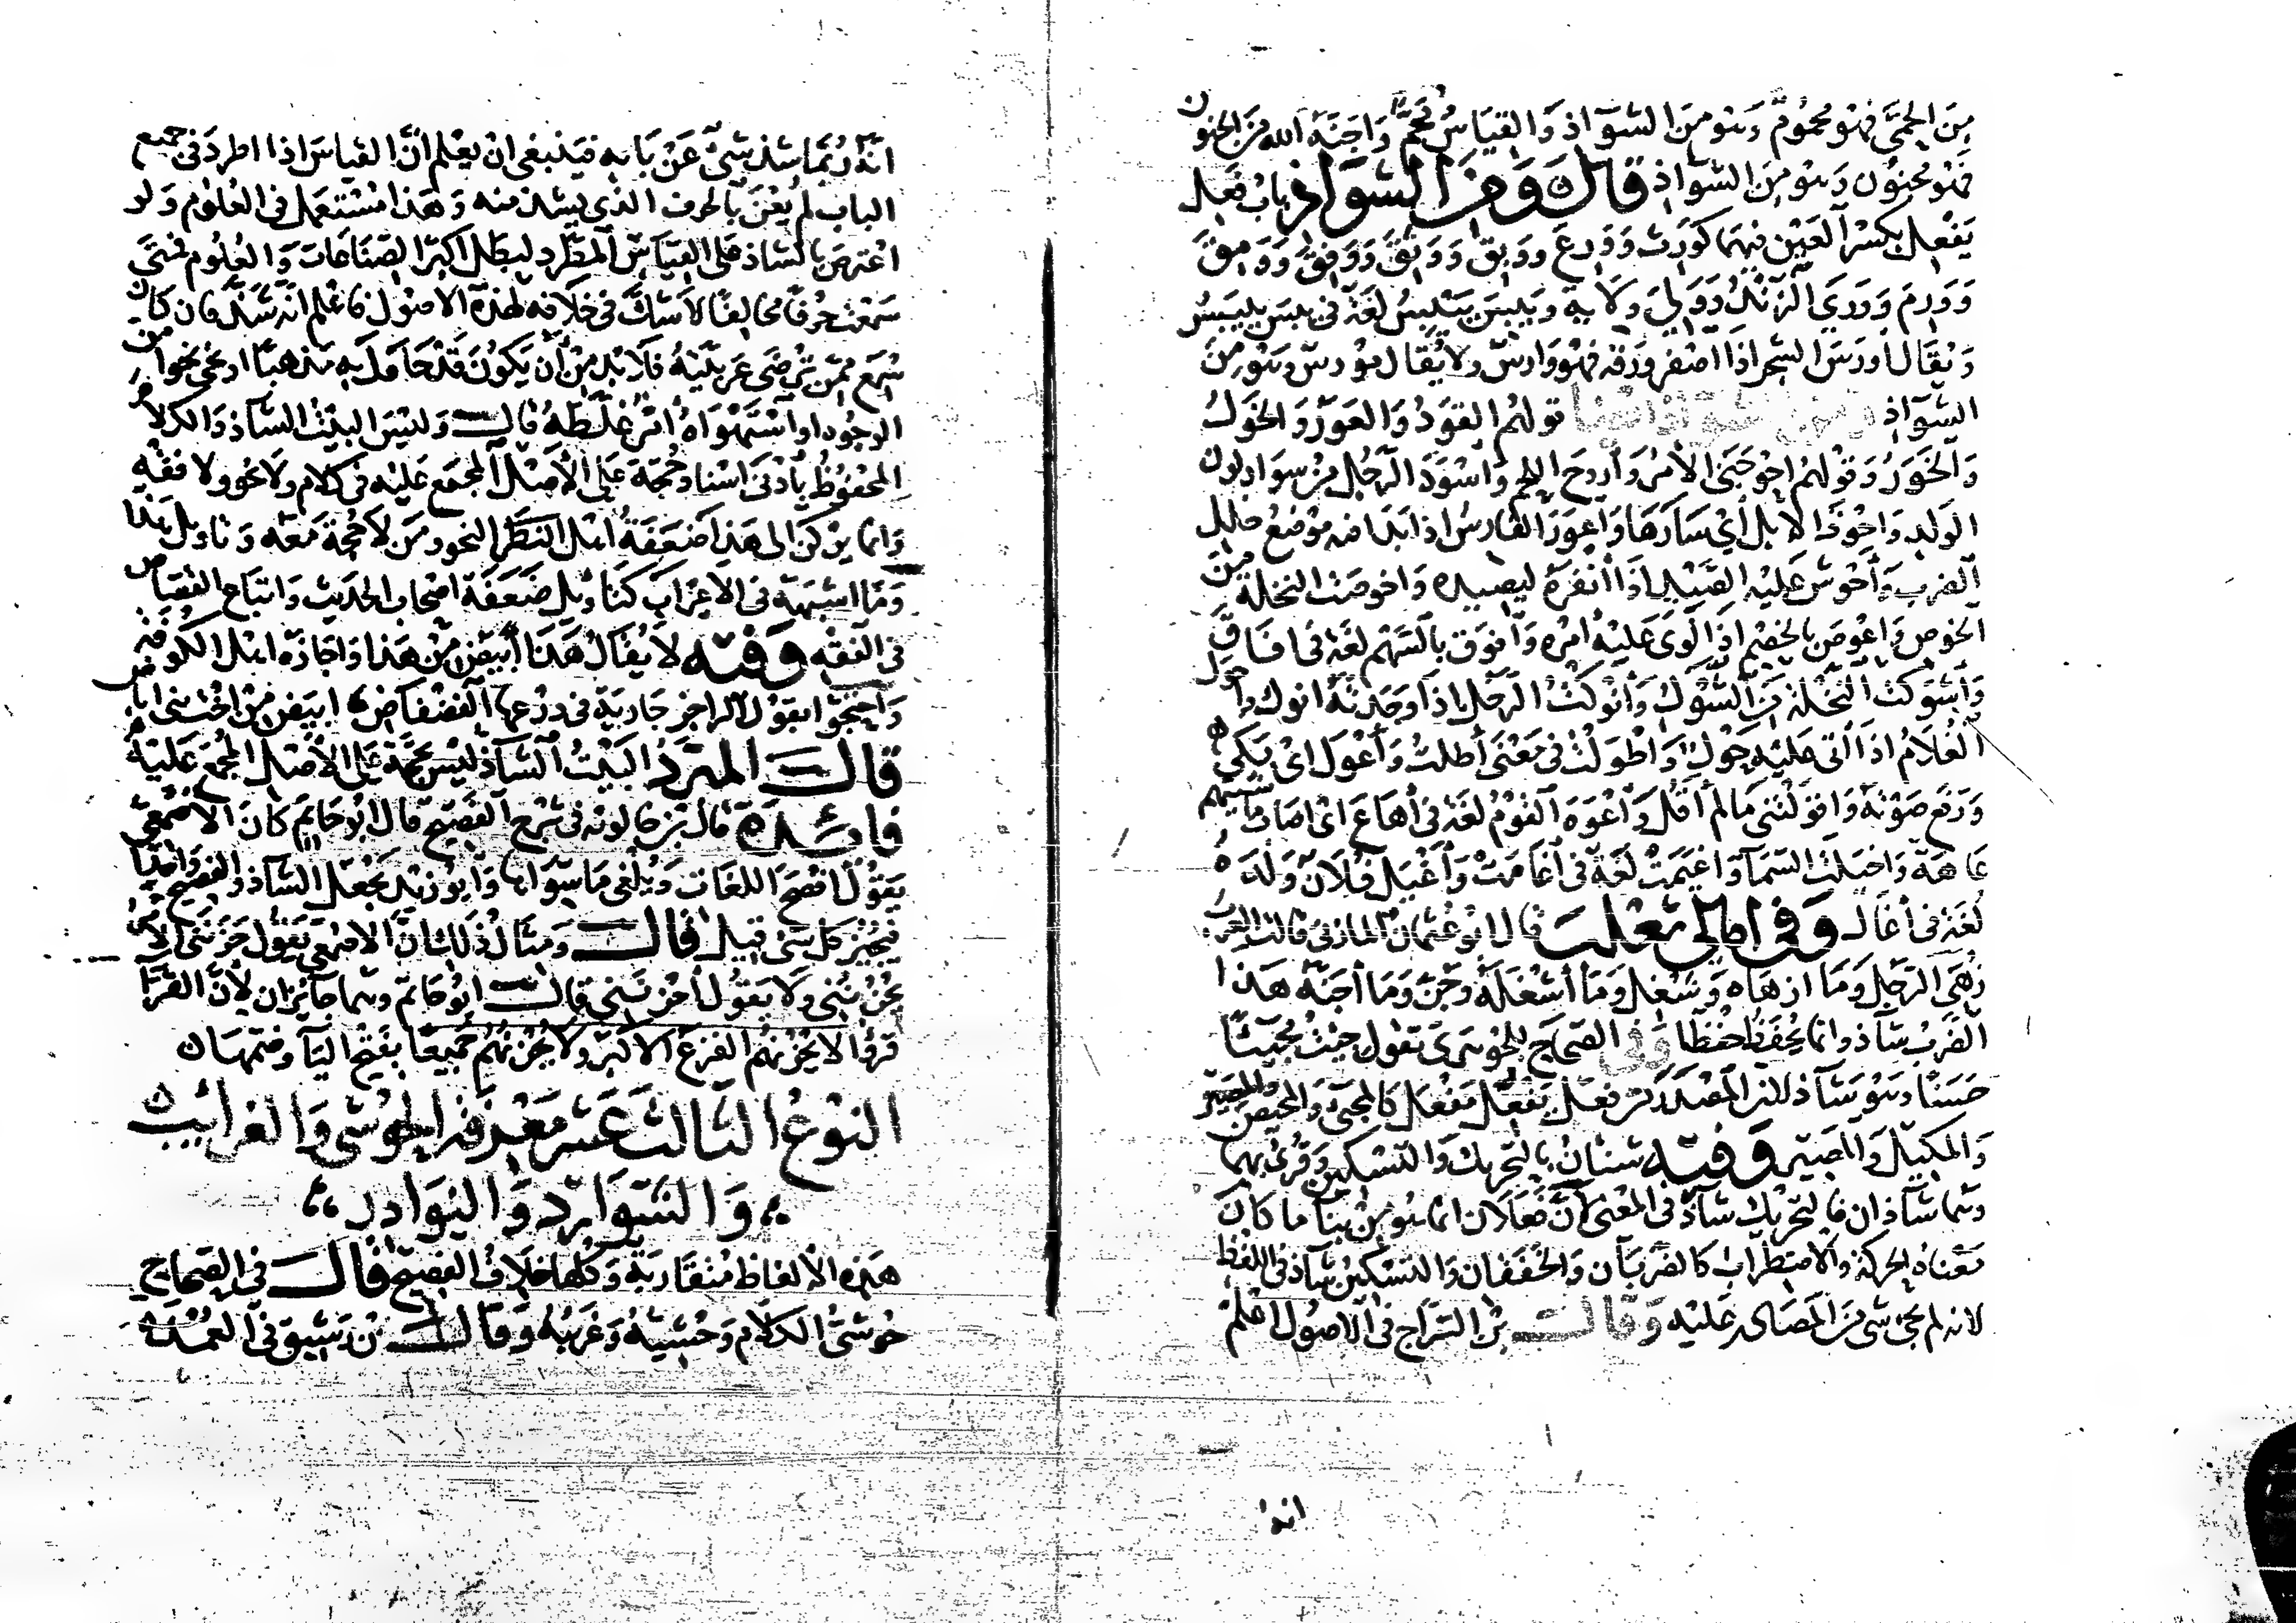 من الحمى فهو محموم وهو من الشواذ والقياس محم واجنه الله من الجنون
فهو مجنون وهو من الشواذ قال ومن الشواذ باب فعل
يفعل بكسر العين فيهما كورث وورع ووبق ووثق ووفق وومق
وورم ووري الزند وولي ولاية ويبس ييبس لغة في يبس ييبس
ويقال اورس الشجر اذا اصفر ورقه فهو وارس ولا يقال مورس وهو من
الشواذ قولهم القود والعور والخول
والخور وقولهم احوجني الامر واروح اللحم واسود الرجل من سواد لون
الولد واحوذ الابل أي سارها واعور الفارس اذا بدا فيه موضع خلل
الضرب واحوش عليه الصيد اذا انفره ليصيده واخوصت النخلة من
الخوص واعوص بالخصم اذا لوى عليه امره وافوق بالسهم لغة في افاق
واشوكت النخلة من الشوك وانوكت الرجل اذا وجدته انوك واحول
الغلام اذا اتى عليه حول واطولت في معنى أطلت وأعول اى بكى
ورفع صوته واقولتني ما لم أقل واعوه القوم لغة في أعاه اى اصاب ماشيتهم
عاهة واخيلت السما واغيمت لغة في أغامت وأغيل فلان ولده
لغة في أغال وفي امالي ثعلب قال ابو عثمان المازني قالت العرب
زهى الرجل وما ازهاه وشغل وما أشغله وجن وما أجنه هذا
الضرب شاذ وانما يحفظ حفظا وفي الصحاح للجوهرى تقول جئت مجيئا
حسنا وهو شاذ لان المصدر من فعل يفعل مفعل كالمجئ والمحيض والمصير
والمكيل والمصير وفيه شنئان بالتحريك والتسكين وقرئ بهما
وهما شاذان فالتحريك شاذ في المعنى لأن فعلان انما هو من بنا ما كان
معناه الحركة والاضطراب كالضربان والخفقان والتسكين شاذ في اللفظ
لانه لم يجئ شى من المصادر عليه وقال بن السراج في الاصول اعلم
انه
انه ربما شذ شئ عن بابه فينبغى ان يعلم أن القياس اذا اطرد في جميع
الباب لم يعن بالحرف الذي يشذ منه وهذا مستعمل في العلوم ولو
اعترض بالشاذ على القياس المطرد لبطل اكثر الصناعات والعلوم فمتى
سمعت حرفا مخالفا لا شك في خلافه لهذه الاصول فاعلم انه شذ فان كان
سمع ممن ترضى عربيته فلابد من أن يكون قد حاول به مذهبا او نحى نحوا من
الوجوه او استهواه أمر غلطه قال وليس البيت الشاذ والكلام
المحفوظ بأدنى اسناد حجة على الأصل المجمع عليه في كلام ولا نحو ولا فقه
وانما يركن الى هذا ضعفة اهل النظر النحو ومن لا حجة معه وتاويل هذا
وما اشبهه في الاعراب كتاويل ضعفة اصحاب الحديث واتباع القصاص
في الفقه وفيه لا يقال هذا أبيض من هذا واجازه اهل الكوفة
واحتجوا بقول الراجز جارية في درعها الفضفاض ابيض من اخت بني اباض
قال المبرد البيت الشاذ ليس بحجة على الأصل المجمع عليه
فائدة قال بن خالويه في شرح الفصيح قال ابو حاتم كان الاصمعي
يقول افصح اللغات ويلغى ما سواها وابو زيد يجعل الشاذ والفصيح واحدا
فيجيز كل شى قيل قال ومثال ذلك ان الاصمعي يقول حزنني الامر
يحزنني ولا يقول أحزنني قال ابو حاتم وهما جائزان لأن القرا
قرؤا لا يحزنهم الفزع الاكبر ولا يحزنهم جميعا بفتح اليا وضمها
النوع الثالث عشر معرفة الحوشي والغرائب
والشوارد والنوادر
هذه الألفاظ متقاربة وكلها خلاف الفصيح قال في الصحاح
حوشى الكلام وحشيه وغريبه وقال بن رشيق في العمدة